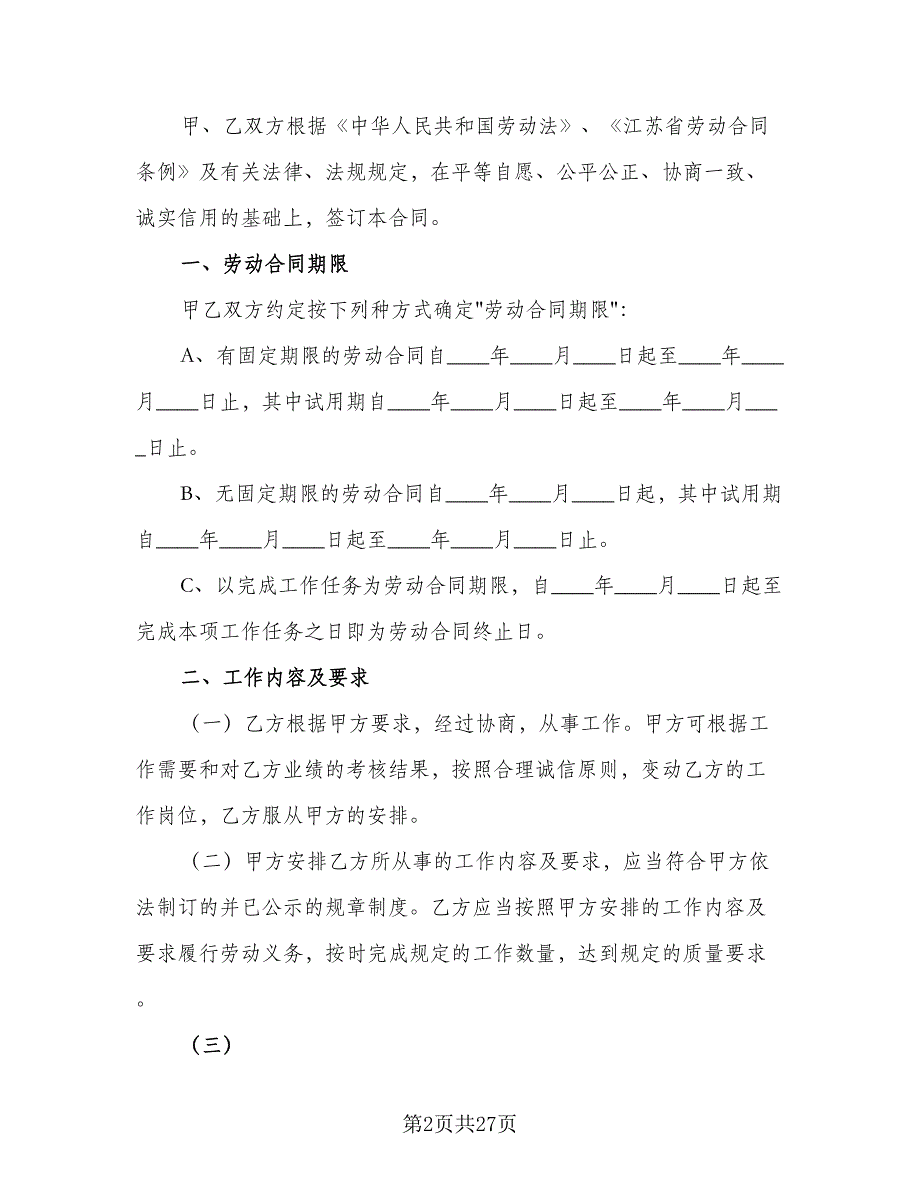 甲、乙双方根据《中华人民共和国劳动法》、《江苏省劳动合同
条例》及有关法律、法规规定，在平等自愿、公平公正、协商一致、
诚实信用的基础上，签订本合同。
一、劳动合同期限
甲乙双方约定按下列种方式确定"劳动合同期限"：
A、有固定期限的劳动合同自____年____月____日起至____年____
月____日止，其中试用期自____年____月____日起至____年____月___
_日止。
B、无固定期限的劳动合同自____年____月____日起，其中试用期
自____年____月____日起至____年____月____日止。
C、以完成工作任务为劳动合同期限，自____年____月____日起至
完成本项工作任务之日即为劳动合同终止日。
二、工作内容及要求
（一）乙方根据甲方要求，经过协商，从事工作。甲方可根据工
作需要和对乙方业绩的考核结果，按照合理诚信原则，变动乙方的工
作岗位，乙方服从甲方的安排。
（二）甲方安排乙方所从事的工作内容及要求，应当符合甲方依
法制订的并已公示的规章制度。乙方应当按照甲方安排的工作内容及
要求履行劳动义务，按时完成规定的工作数量，达到规定的质量要求
。
（三）
第2页共27页